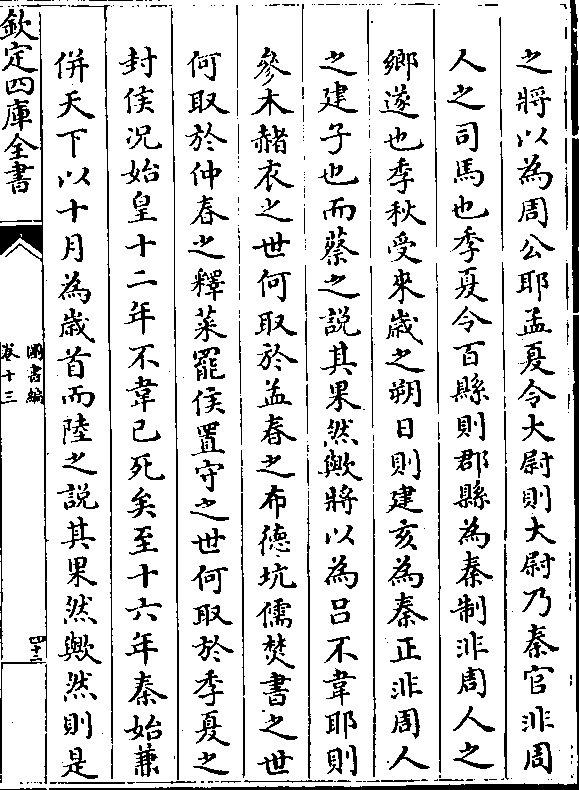 之將以為周公耶孟夏令大尉則大尉乃秦官非周
人之司馬也季夏令百縣則郡縣為秦制非周人之
鄉遂也季秋受來歲之朔日則建亥為秦正非周人
之建子也而蔡之說其果然歟將以為呂不韋耶則
參木赭衣之世何取於孟春之布德坑儒焚書之世
何取於仲春之釋菜罷侯置守之世何取於季夏之
封侯况始皇十二年不韋已死矣至十六年秦始兼
併天下以十月為歲首而陸之說其果然歟然則是
欽定四庫全書
圖書編
卷十三
四十二